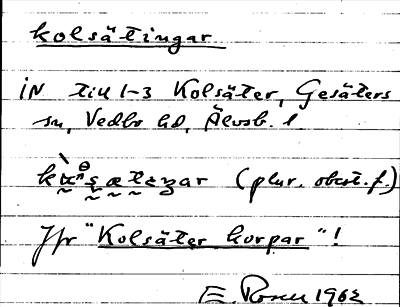 kolsätingar
IN till 1-3 Kolsäter, Gesäters
sn, Vedbo hd, Älvsb. l
(plur. obest. f.)
Jfr "Kolsäter korpar"!
E. Rosén 1962